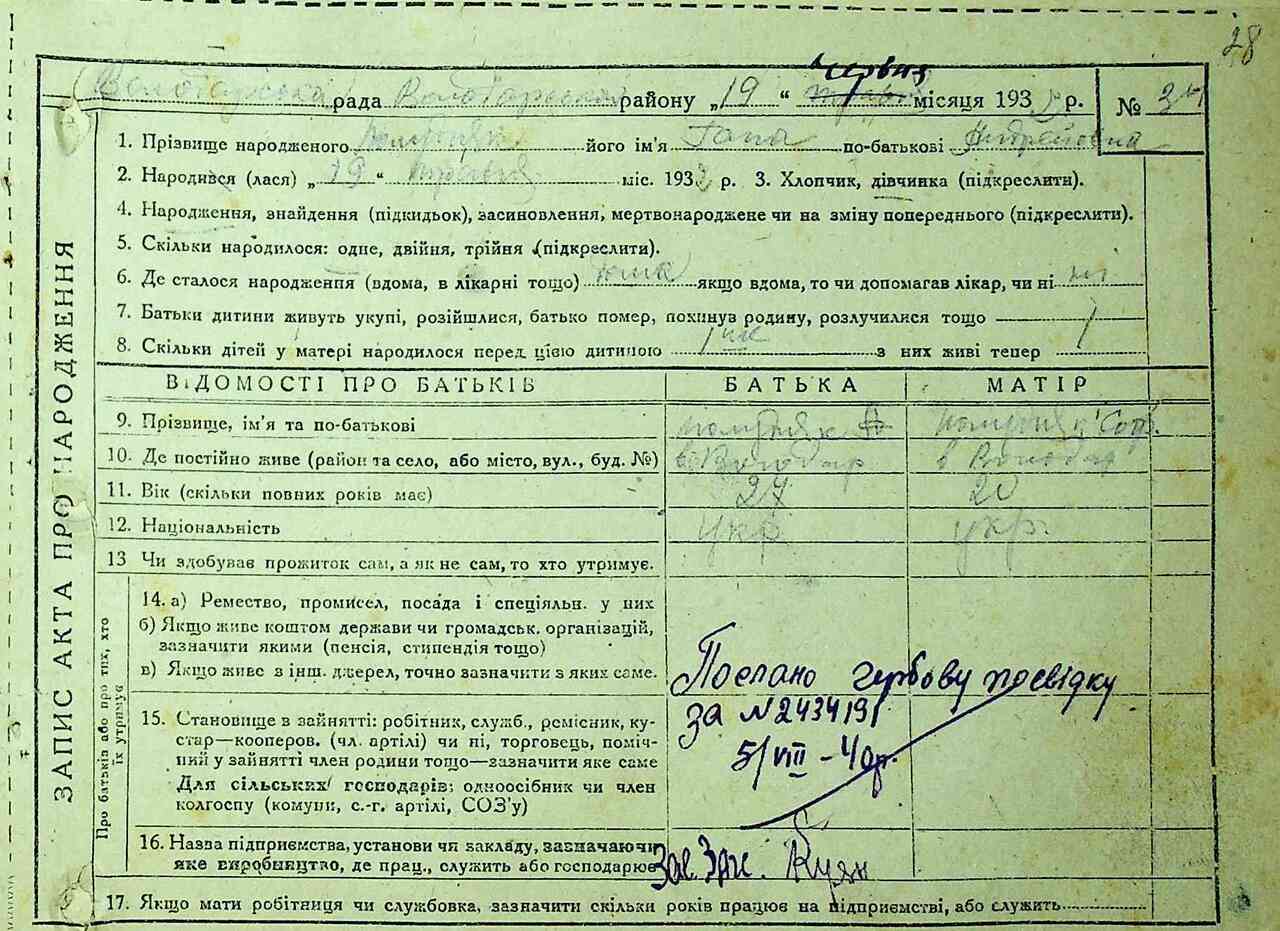 28
Володарська рада Володарського району „19“ червня місяця 193 р. № 34
1. Прізвище народженого його ім'я Ганна по-батькові Андреевна
2. Народився (лася) „19“ травня міс. 193 р. 3. Хлопчик, дівчинка (підкреслити).
4. Народження, знайдення (підкидьок), засиновлення, мертвонароджене чи на зміну попереднього (підкреслити).
5. Скільки народилося: одне, двійня, трійня (підкреслити).
6. Де сталося народження (вдома, в лікарні тощо) якщо вдома, то чи допомагав лікар, чи ні ні
7. Батьки дитини живуть укупі, розійшлися, батько помер, покинув родину, розлучилися тощо
8. Скільки дітей у матері народилося перед цією дитиною 1 з них живі тепер
ЗАПИС АКТА ПРО НАРОДЖЕННЯ
ВІДОМОСТІ ПРО БАТЬКІВ БАТЬКА МАТІР
9. Прізвище, ім'я та по-батькові
10. Де постійно живе (район та село, або місто, вул., буд. №) в Володар в Володар
11. Вік (скільки повних років має) 27 20
12. Національність укр укр.
13 Чи здобував прожиток сам, а як не сам, то хто утримує.
Про батьків або про тих, хто їх утримує
14. а) Ремество, промисел, посада і спеціяльн. у них
б) Якщо живе коштом держави чи громадськ. організацій,
зазначити якими (пенсія, стипендія тощо)
в) Якщо живе з інш. джерел, точно зазначити з яких саме.
Послано гербову посвідку
за №243419
5/VIII - 40р.
15. Становище в зайнятті: робітник, служб., ремісник, ку-
стар—кооперов. (чл. артілі) чи ні, торговець, поміч-
ний у зайнятті член родини тощо—зазначити яке саме
Для сільських господарів: одноосібник чи член
колгоспу (комуни, с.-г. артілі, СОЗ'у)
16. Назва підприємства, установи чи закладу, зазначаючи
яке виробництво, де прац., служить або господарює
Зав. Заг.
17. Якщо мати робітниця чи службовка, зазначити скільки років працює на підприємстві, або служить